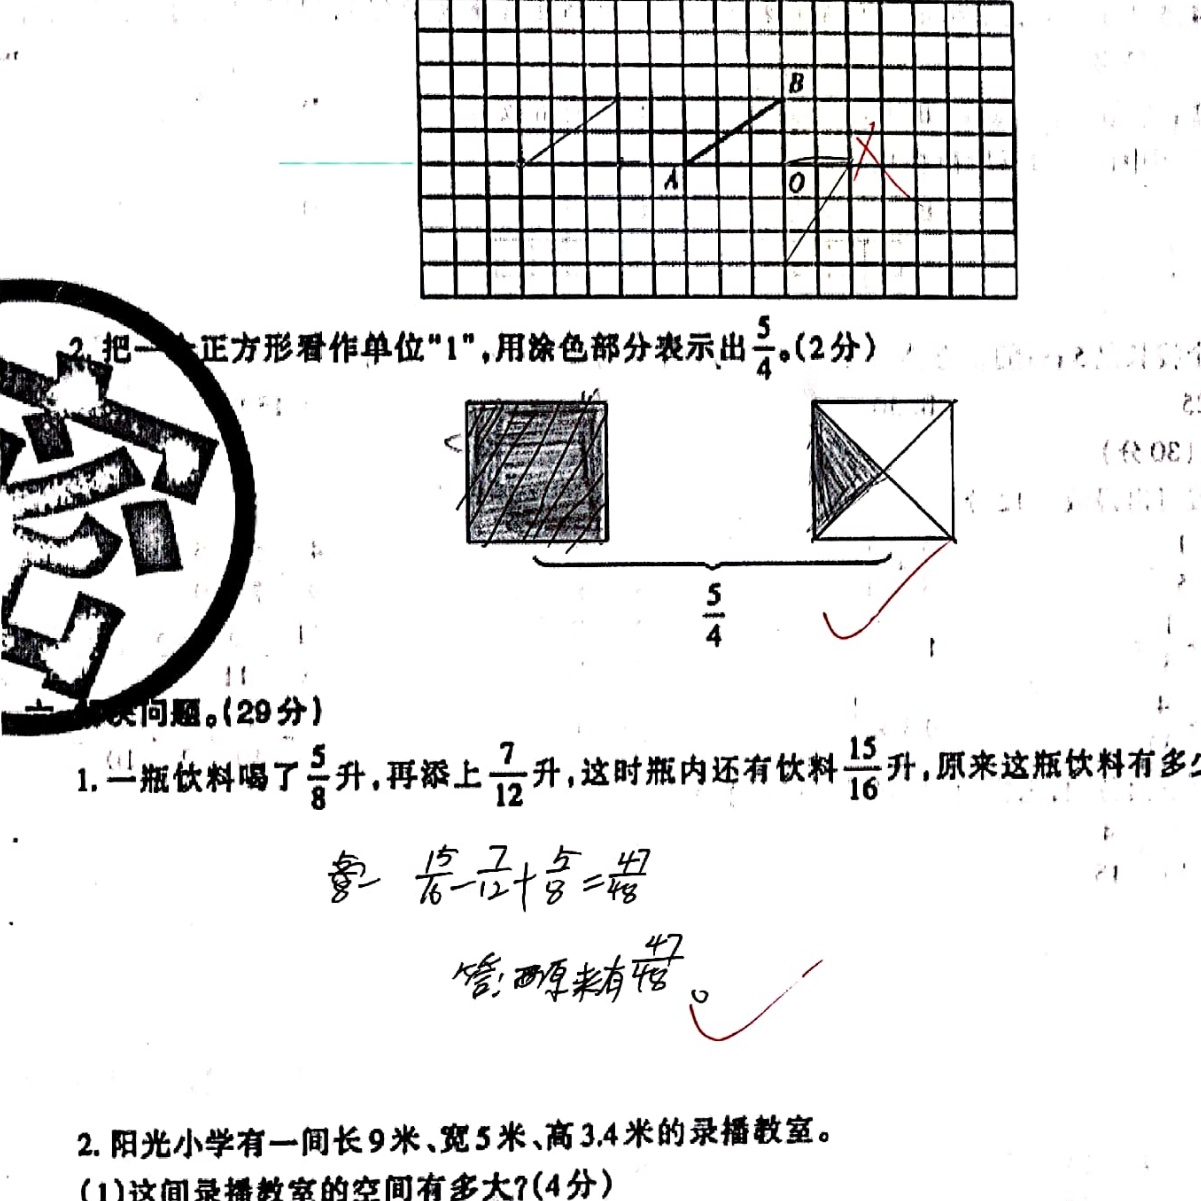 B
A O
2. 把一个正方形看作单位“1”,用涂色部分表示出5/4。(2分)
5/4
问题。(29分)
1. 一瓶饮料喝了5/8升,再添上7/12升,这时瓶内还有饮料15/16升,原来这瓶饮料有多
15/16-7/12+5/8=47/48
答:原来有47/48。
2. 阳光小学有一间长9米、宽5米、高3.4米的录播教室。
(1)这间录播教室的空间有多大?(4分)